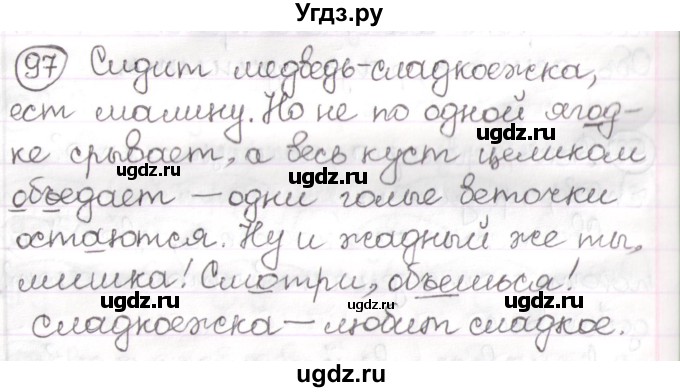 Угдз.ру
97 Сидит медведь-сладкоежка,
ест малину. Но не по одной ягод-
ке срывает, а весь куст целиком
объедает – одни голые веточки
остаются. Ну и жадный же ты,
мишка! Смотри, объешься!
Сладкоежка – любит сладкое.
ugdz.ru
ugdz.ru
ugdz.ru
ugdz.ru
ugdz.ru
ugdz.ru
ugdz.ru
ugdz.ru
ugdz.ru
ugdz.ru
ugdz.ru